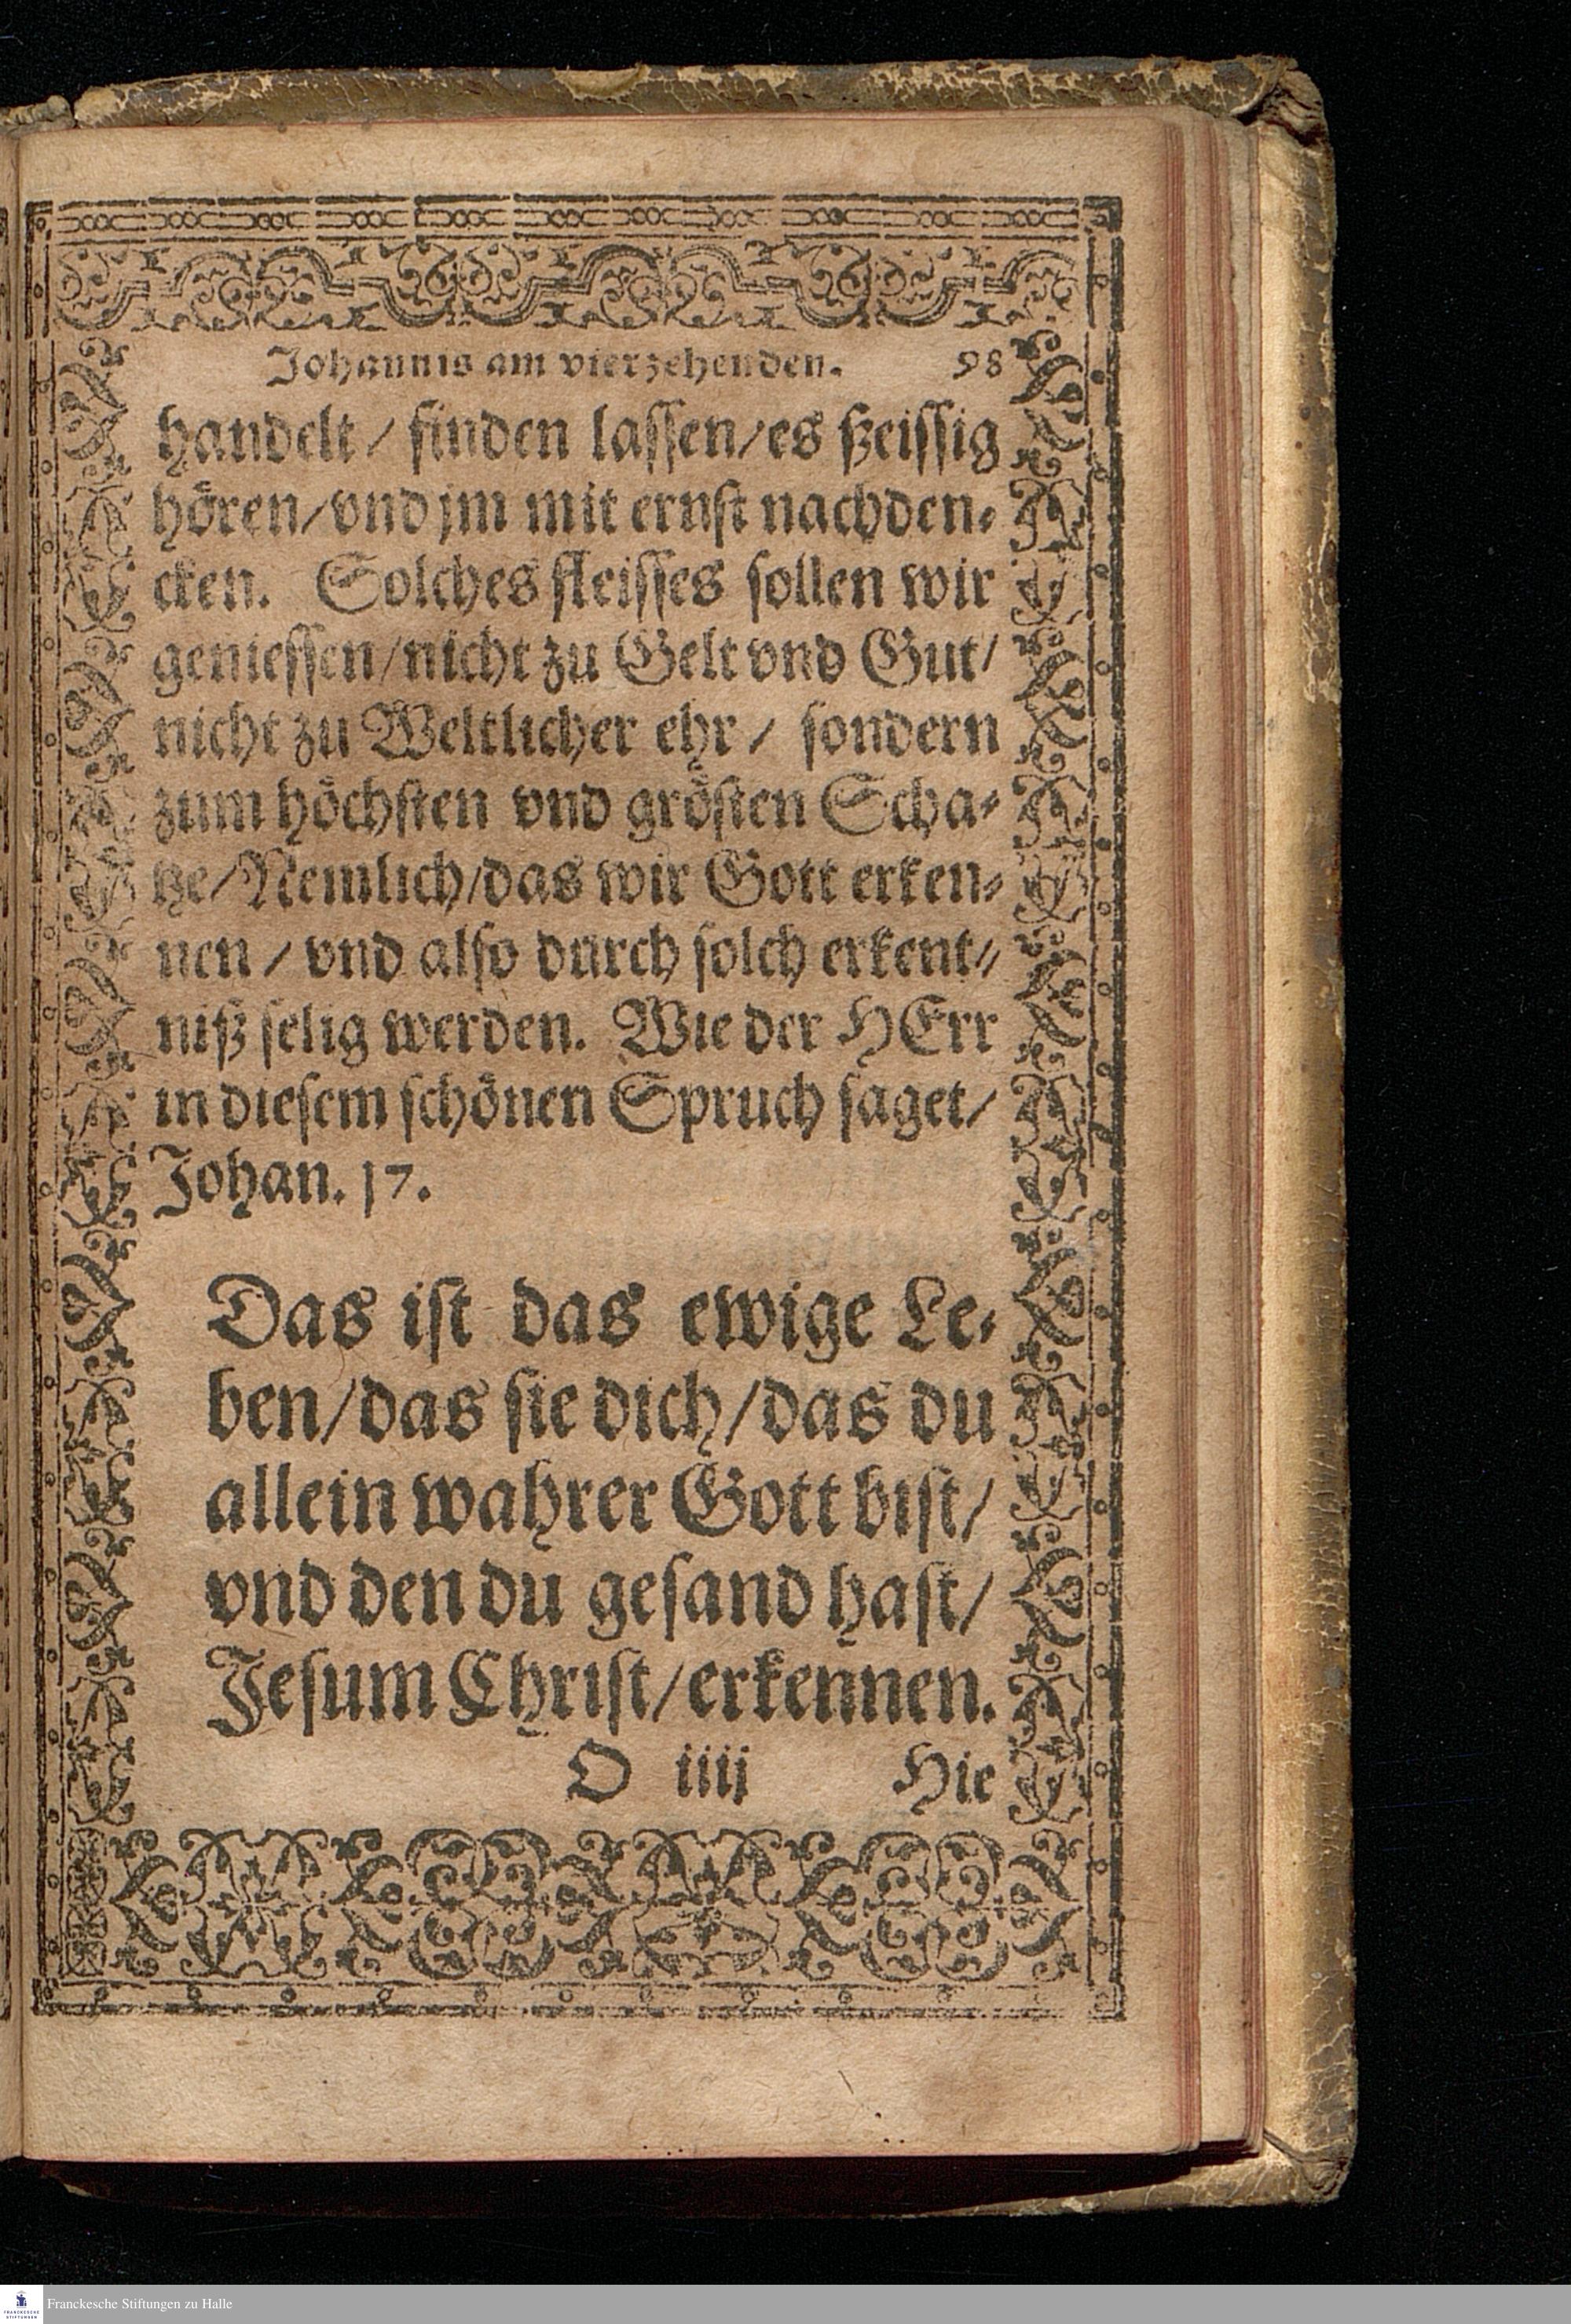 Johannis am vierzehenden. 98
handelt / finden lassen/es fleissig
hören/vnd jm mit ernst nachden-
cken. Solches fleisses sollen wir
geniessen/nicht zu Gelt vnd Gut/
nicht zu Weltlicher ehr / sondern
zum höchsten vnd grösten Scha-
tze/Nemlich/das wir Gott erken-
nen / vnd also durch solch erkent-
niß selig werden. Wie der HErr
in diesem schönen Spruch saget/
Johan. 17.
Das ist das ewige Le-
ben/das sie dich/das du
allein wahrer Gott bist/
vnd den du gesand hast/
Jesum Christ/erkennen.
O iiij Hie
FRANCKESCHE STIFTUNGEN
Franckesche Stiftungen zu Halle